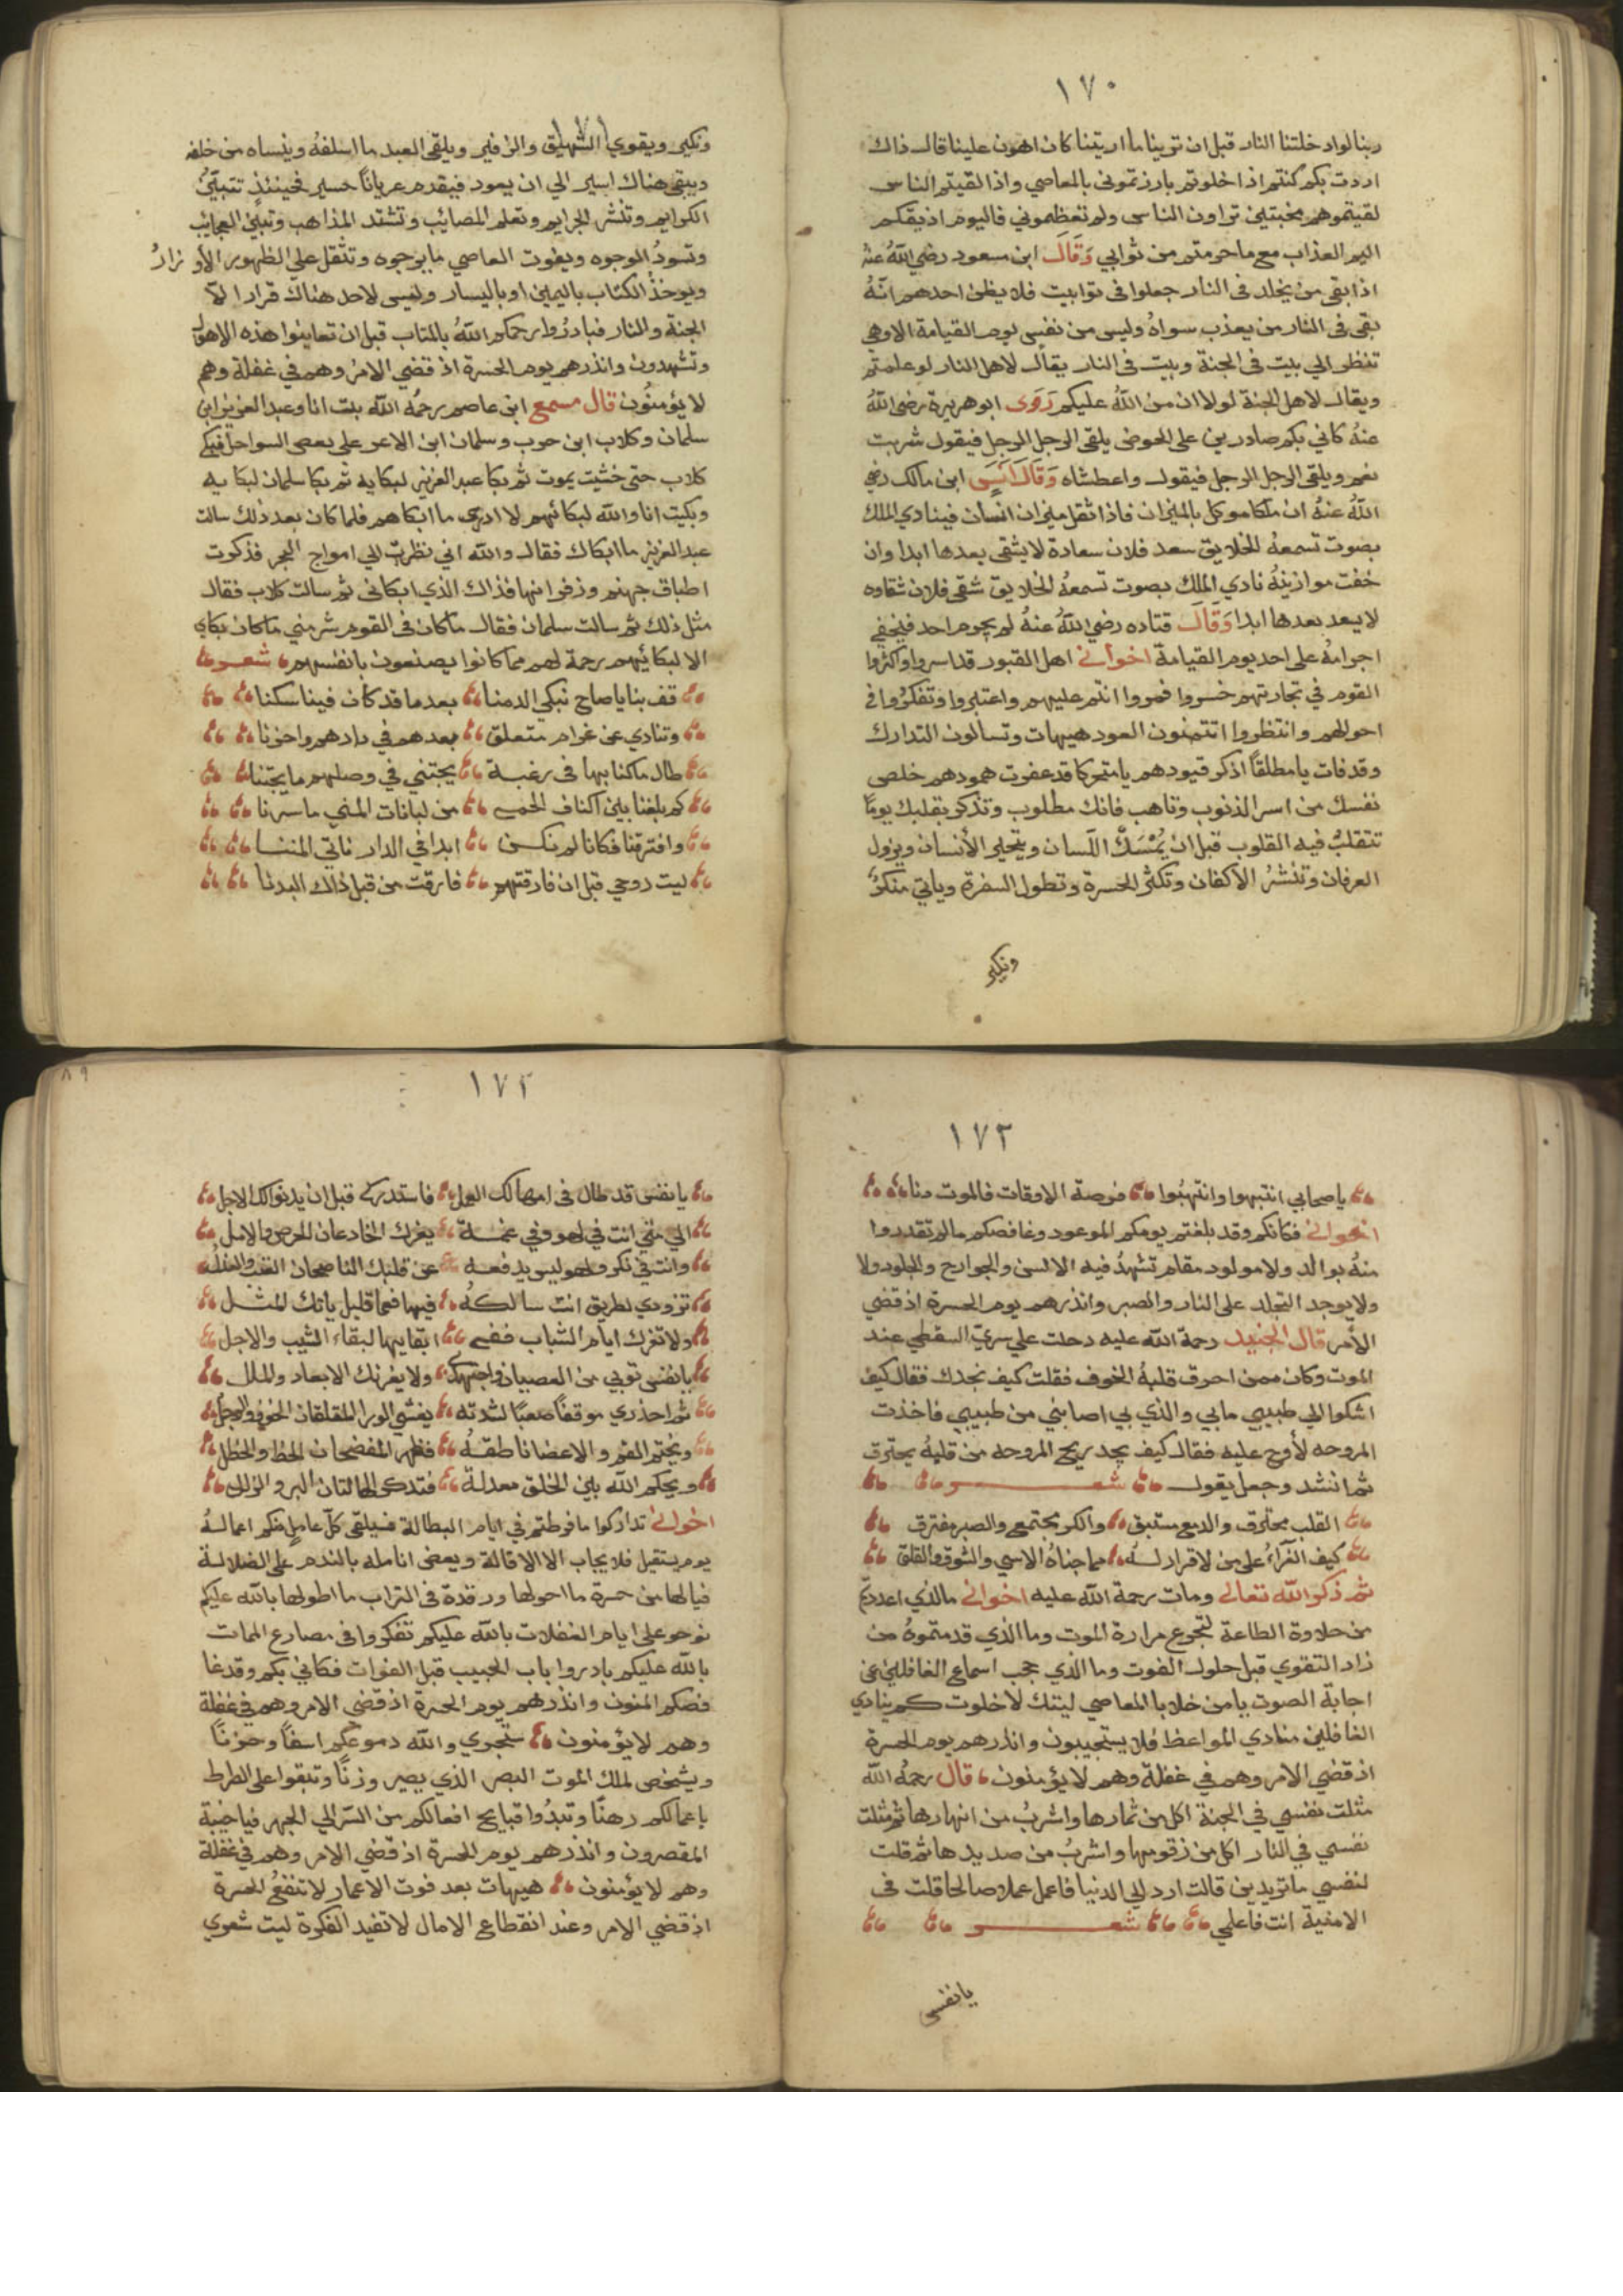 ١٧٠
ربنا لواد خلتنا النار قبل ان تورينا ما اريتنا كان اهون علينا قال ذاك
اردت بكم كنتم اذا خلوتم بارزتموني بالمعاصي واذا لقيتم الناس
لقيتموهم مخبتين تراون الناس ولم تعظموني فاليوم اذيقكم
اليم العذاب مع ما حرمتم من ثوابي وقال ابن مسعود رضي الله عنه
اذا بقى من يخلد فى النار جعلوا فى توابيت فلا يظن احدهم انه
بقى فى النار من يعذب سواه وليس من نفس يوم القيامة الا وهى
تنظر الي بيت فى الجنة وبيت فى النار يقال لاهل النار لو علمتم
ويقال لاهل الجنة لولا ان من الله عليكم روى ابو هريرة رضي الله
عنه كاني بكم صادرين على الحوض يلقى الرجل الرجل فيقول شربت
نعم ويلقى الرجل الرجل فيقول واعطشاه وقال انس ابن مالك رضي
الله عنه ان ملكا موكل بالميزان فاذا ثقل ميزان انسان فينادي الملك
بصوت تسمعه الخلايق سعد فلان سعادة لا يشقى بعدها ابدا وان
خفت موازينه نادي الملك بصوت تسمعه الخلايق شقى فلان شقاوه
لا يسعد بعدها ابدا وقال قتاده رضي الله عنه لم يجرم احد فيخفي
اجرامه على احد يوم القيامة اخواني اهل القبور قد اسروا واكثروا
القوم في تجارتهم خسروا فمروا انتم عليهم واعتبروا وتفكروا في
احوالهم وانتظروا اتتمنون العود هيهات وتسالون التدارك
وقد فات يا مطلقاً اذكر قيودهم يا متحركا قد عفوت همودهم خلص
نفسك من اسر الذنوب وتاهب فانك مطلوب وتذكر بقلبك يوماً
تتقلب فيه القلوب قبل ان يمسك اللسان ويتحير الأنسان ويزول
العرفان وتنشر الأكفان وتكثر الحسرة وتطول السفرة وياتي منكر
ونكير
١٧١
ونكير ويقوي الشهيق والزفير ويلقى العبد ما اسلفه وينساه من خلفه
ويبقى هناك اسير الي ان يعود فيقدم عرياناً حسير فحينئذٍ تتبين
الكرايم وتنشر الجرايم وتعلم المصائب وتشتد المذاهب وتبين العجايب
وتسود الوجوه ويفوت العاصي ما يرجوه وتثقل على الظهور الأوزار
ويوخذ الكتاب باليمين او باليسار وليس لاحد هناك قرار الا
الجنة والنار فبادروا رحمكم الله بالمتاب قبل ان تعاينوا هذه الاهوال
وتشهدون وانذرهم يوم الحسرة اذ قضي الامر وهم في غفلة وهم
لا يؤمنون قال مسمع ابن عاصم رحمه الله بت انا وعبد العزيز ابن
سلمان وكلاب ابن حرب وسلمان ابن الاعر على بعض السواحل فبكى
كلاب حتى خشيت يموت ثم بكا عبد العزيز لبكايه ثم بكا سلمان لبكايه
وبكيت انا والله لبكائهم لا ادري ما ابكاهم فلما كان بعد ذلك سالت
عبد العزيز ما ابكاك فقال والله اني نظرت الي امواج البحر فذكرت
اطباق جهنم وزفراتها فذاك الذي ابكاني ثم سالت كلاب فقال
مثل ذلك ثم سالت سلمان فقال ما كان فى القوم شر مني ما كان بكاي
الا لبكائهم رحمة لهم مما كانوا يصنعون بانفسهم شعر
قف بنا يا صاح نبكي الدمنا بعد ما قد كان فينا سكنا
وتنادي عن غرام متعلق بعدهم في دارهم واحزنا
طال ما كنا بها فى رغبة يجتني في وصلهم ما يجتنا
كم بلغنا بين اكناف الحمى من لبانات المني ما سرنا
وافترقنا فكانا لم نكن ابدا في الدار ناتي المننا
ليت روحي قبل ان فارقتهم فارقت من قبل ذاك البدنا
١٧٢
يا صحابي انتبهوا وانتهبوا فرصة الاوقات فالموت دنا
اخواني فكانكم وقد بلغتم يومكم الموعود وغافصكم ما لم تقدروا
منه بوالد ولا مولود مقام تشهد فيه الالسن والجوارح والجلود ولا
ولا يوجد التجلد على النار والصبر وانذرهم يوم الحسرة اذ قضي
الأمر قال الجنيد رحمة الله عليه دخلت علي سري السقطي عند
الموت وكان ممن احرق قلبه الخوف فقلت كيف نجدك فقال كيف
اشكوا الي طبيبي ما بي والذي بي اصابني من طبيبي فاخذت
المروحه لأروح عليه فقال كيف يجد ريح المروحه من قلبه يحترق
ثم انشد وجعل يقول شعر
القلب محترق والدمع مستبق والكرب مجتمع والصبر مفترق
كيف القرار على من لا قرار له مما جناه الاسي والشوق والقلق
ثم ذكر الله تعالى ومات رحمة الله عليه اخواني ما الذي اعددتم
من حلاوة الطاعة لتجرع مرارة الموت وما الذي قدمتموه من
زاد التقوي قبل حلول الفوت وما الذي حجب اسماع الغافلين عن
اجابة الصوت يا من خلا بالمعاصي ليتك لا خلوت كم ينادي
الغافلين منادي المواعظ فلا يستجيبون وانذرهم يوم الحسرة
اذ قضي الامر وهم في غفلة وهم لا يؤمنون قال رحمه الله
مثلت نفسي في الجنة اكل من ثمارها واشرب من انهارها ثم مثلت
نفسي في النار اكل من زقومها واشرب من صديدها ثم قلت
لنفسي ما تريدين قالت ارد الي الدنيا فاعمل عملا صالحا قلت فى
الامنية انت فاعلمي شعر
يا نفس
١٧٣
يا نفس قد طال فى امهالك العمل فاستدركى قبل ان يدنوا لك الاجل
الي متي انت في لهو وفي غفلة يغرك الخادعان الحرص والامل
وانت في نكر ولهو ليس يدفعه عن قلبك الناصحان العتب والعذل
تزودي لطريق انت سالكه فيها فعما قليل ياتك المثل
ولا تغرك ايام الشباب ففى ابقايها لبقاء الشيب والاجل
يا نفس توبي من العصيان واجتهدى ولا يغرنك الابعاد والملل
ثم احذري موقفاً صعباً لشدته يغشي الورا المقلقان الخوف والوجل
ويختم الفم والاعضا ناطقة فظهر المفضحان الحظ والخطل
ويحكم الله بين الخلق معدلة فتذكر الحالتان البر والزلل
اخواني تداركوا ما فرطتم في ايام البطالة فسيلقى كل عامل منكم اعماله
يوم يستقيل فلا يجاب الا الاقالة ويعض انامله بالندم على الضلالة
فيالها من حسرة ما احولها ورقدة فى التراب ما اطولها بالله عليكم
نوحو على ايام الغفلات بالله عليكم تفكروا فى مصارع الممات
بالله عليكم بادروا باب الحبيب قبل الفوات فكاني بكم وقد غا
فصكم المنون وانذرهم يوم الحسرة اذ قضي الامر وهم في غفلة
وهم لا يؤمنون ستجري والله دموعكم اسفاً وحزناً
ويشخص لملك الموت البصر الذي يصير وزناً وتبقوا على الصراط
باعمالكم رهناً وتبدوا قبايح افعالكم من السر الي الجهر فيا خيبة
المقصرون وانذرهم يوم الحسرة اذ قضي الامر وهم في غفلة
وهم لا يؤمنون هيهات بعد فوت الاعمار لا تنفع الحسرة
اذ قضي الامر وعند انقطاع الامال لا تفيد الفكرة ليت شعري
٨٩